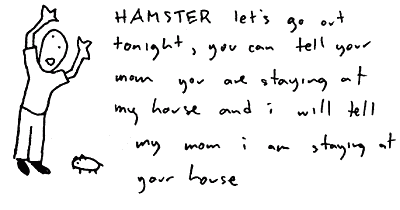 HAMSTER let's go out
tonight, you can tell your
mom you are staying at
my house and i will tell
my mom i am staying at
your house